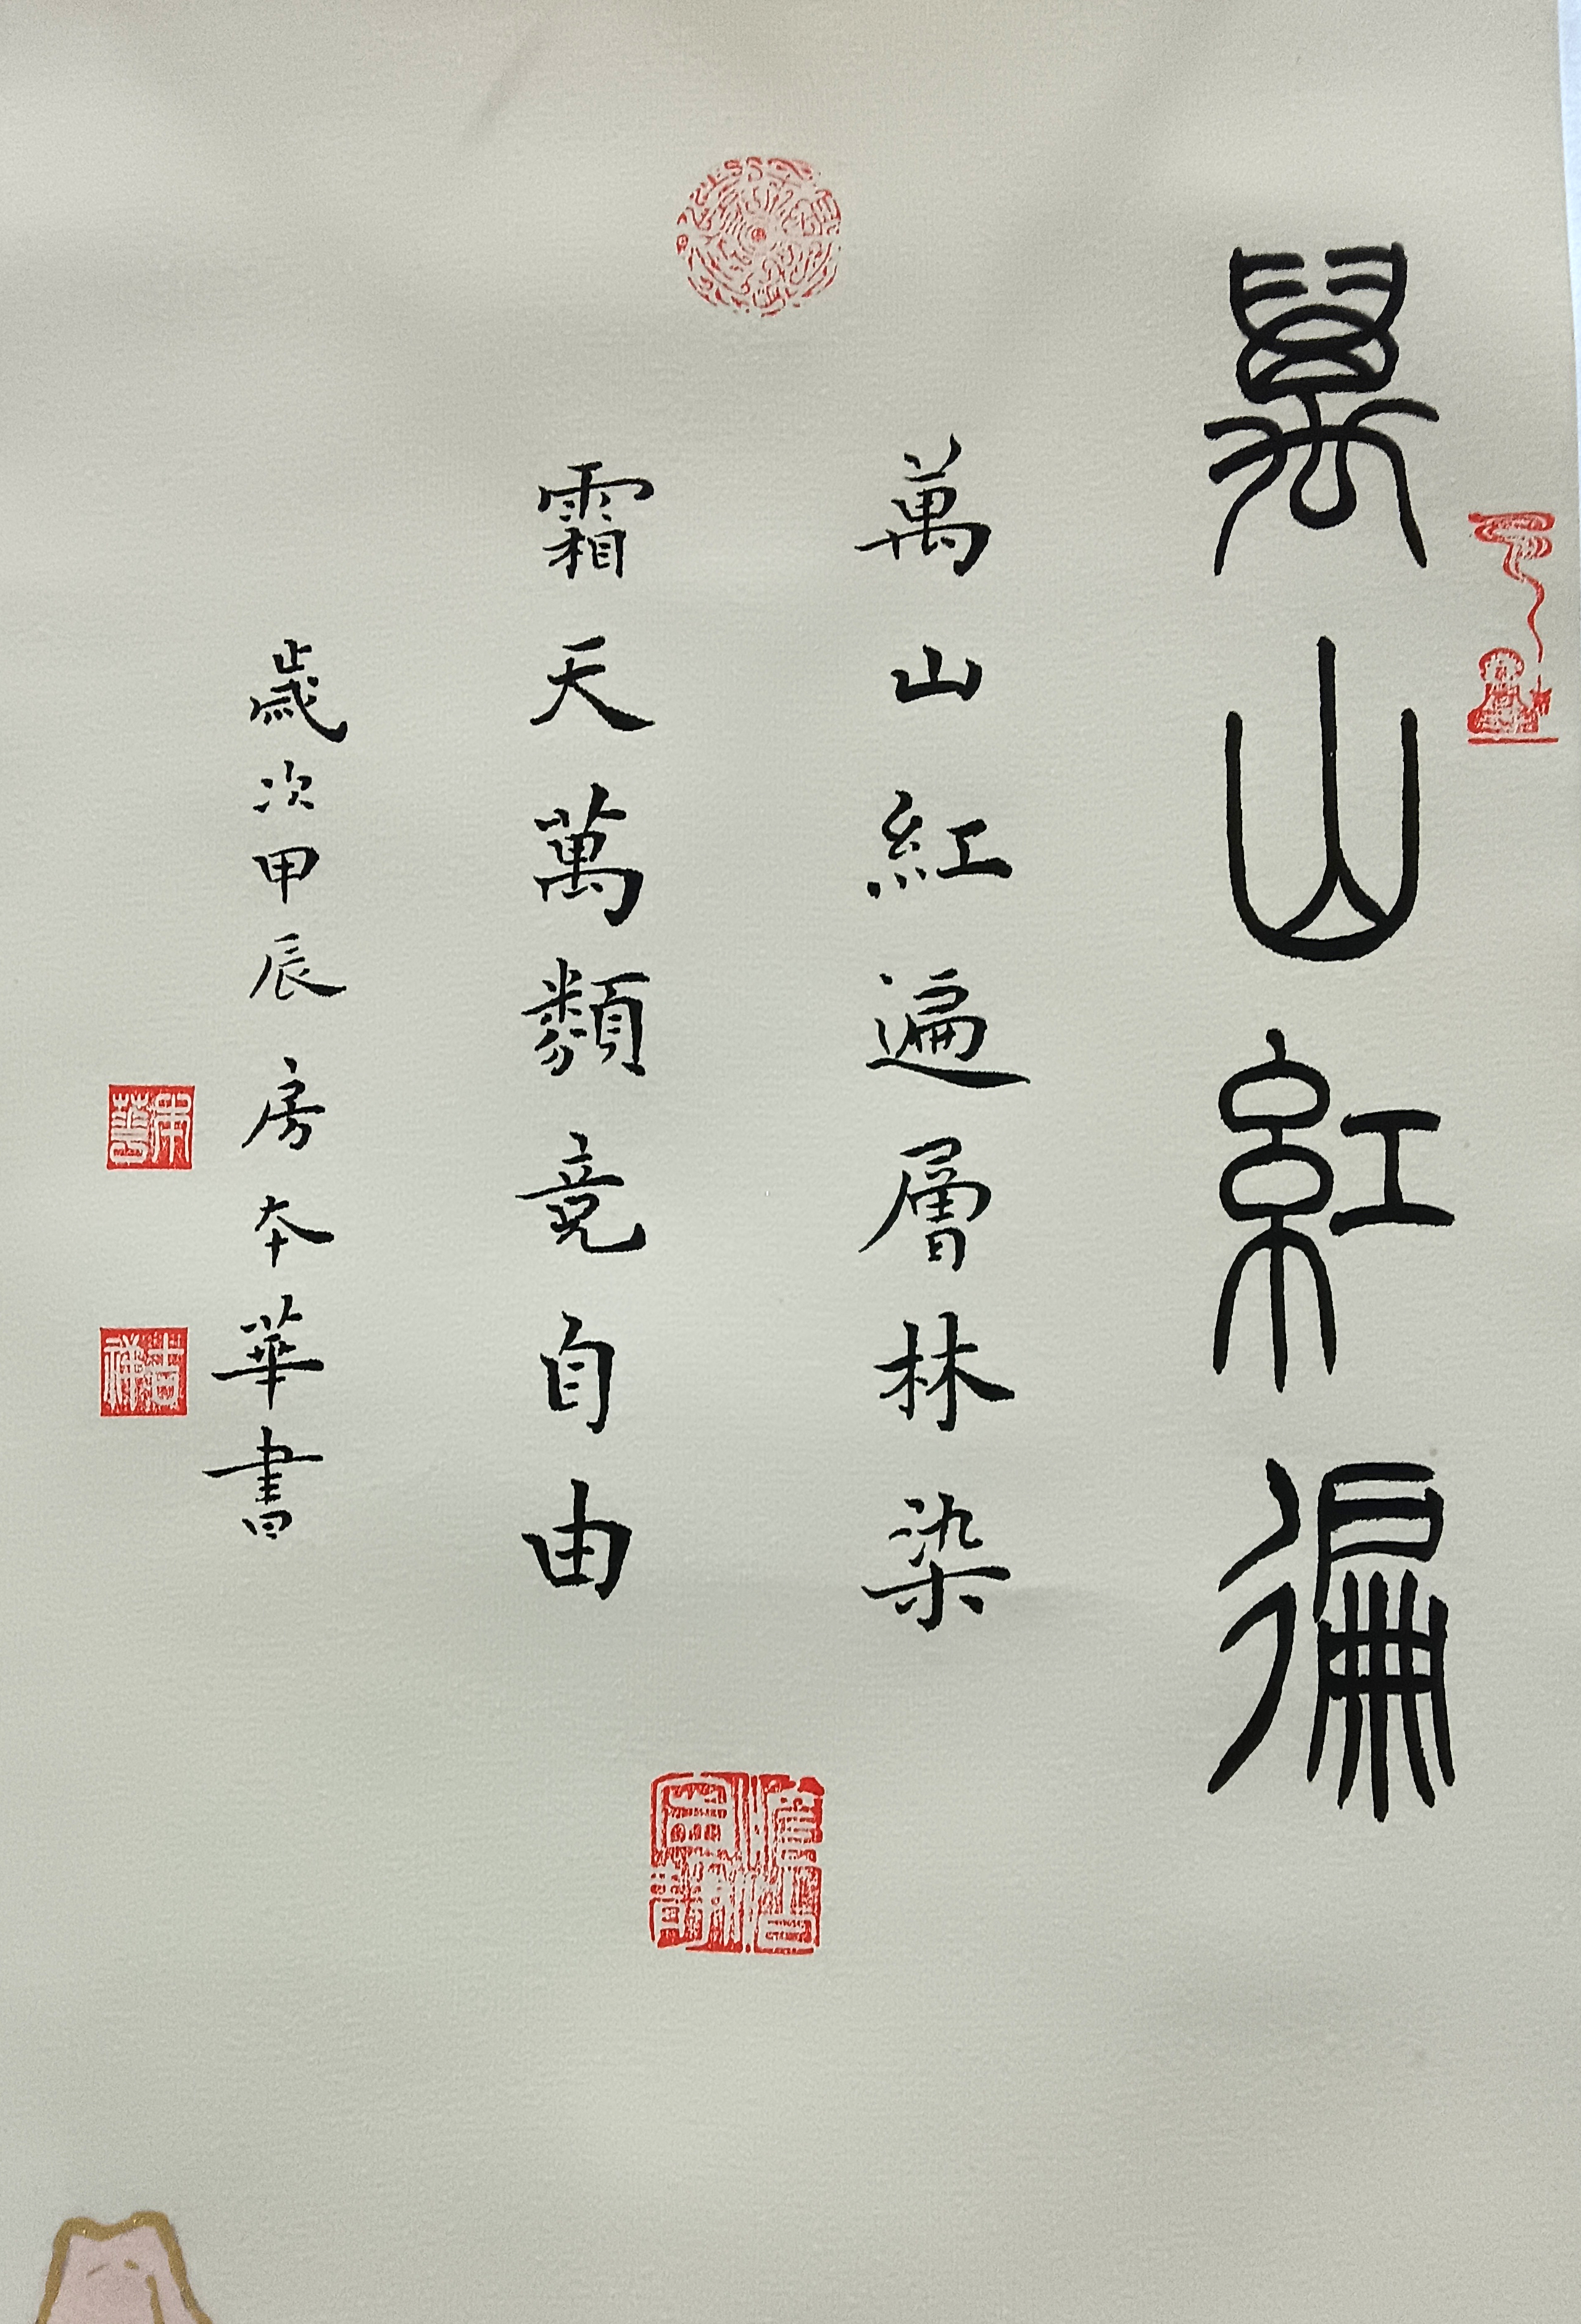 萬山紅徧
萬山紅遍層林染
霜天萬類竟自由
歲次甲辰 房本華書
本華
吉祥